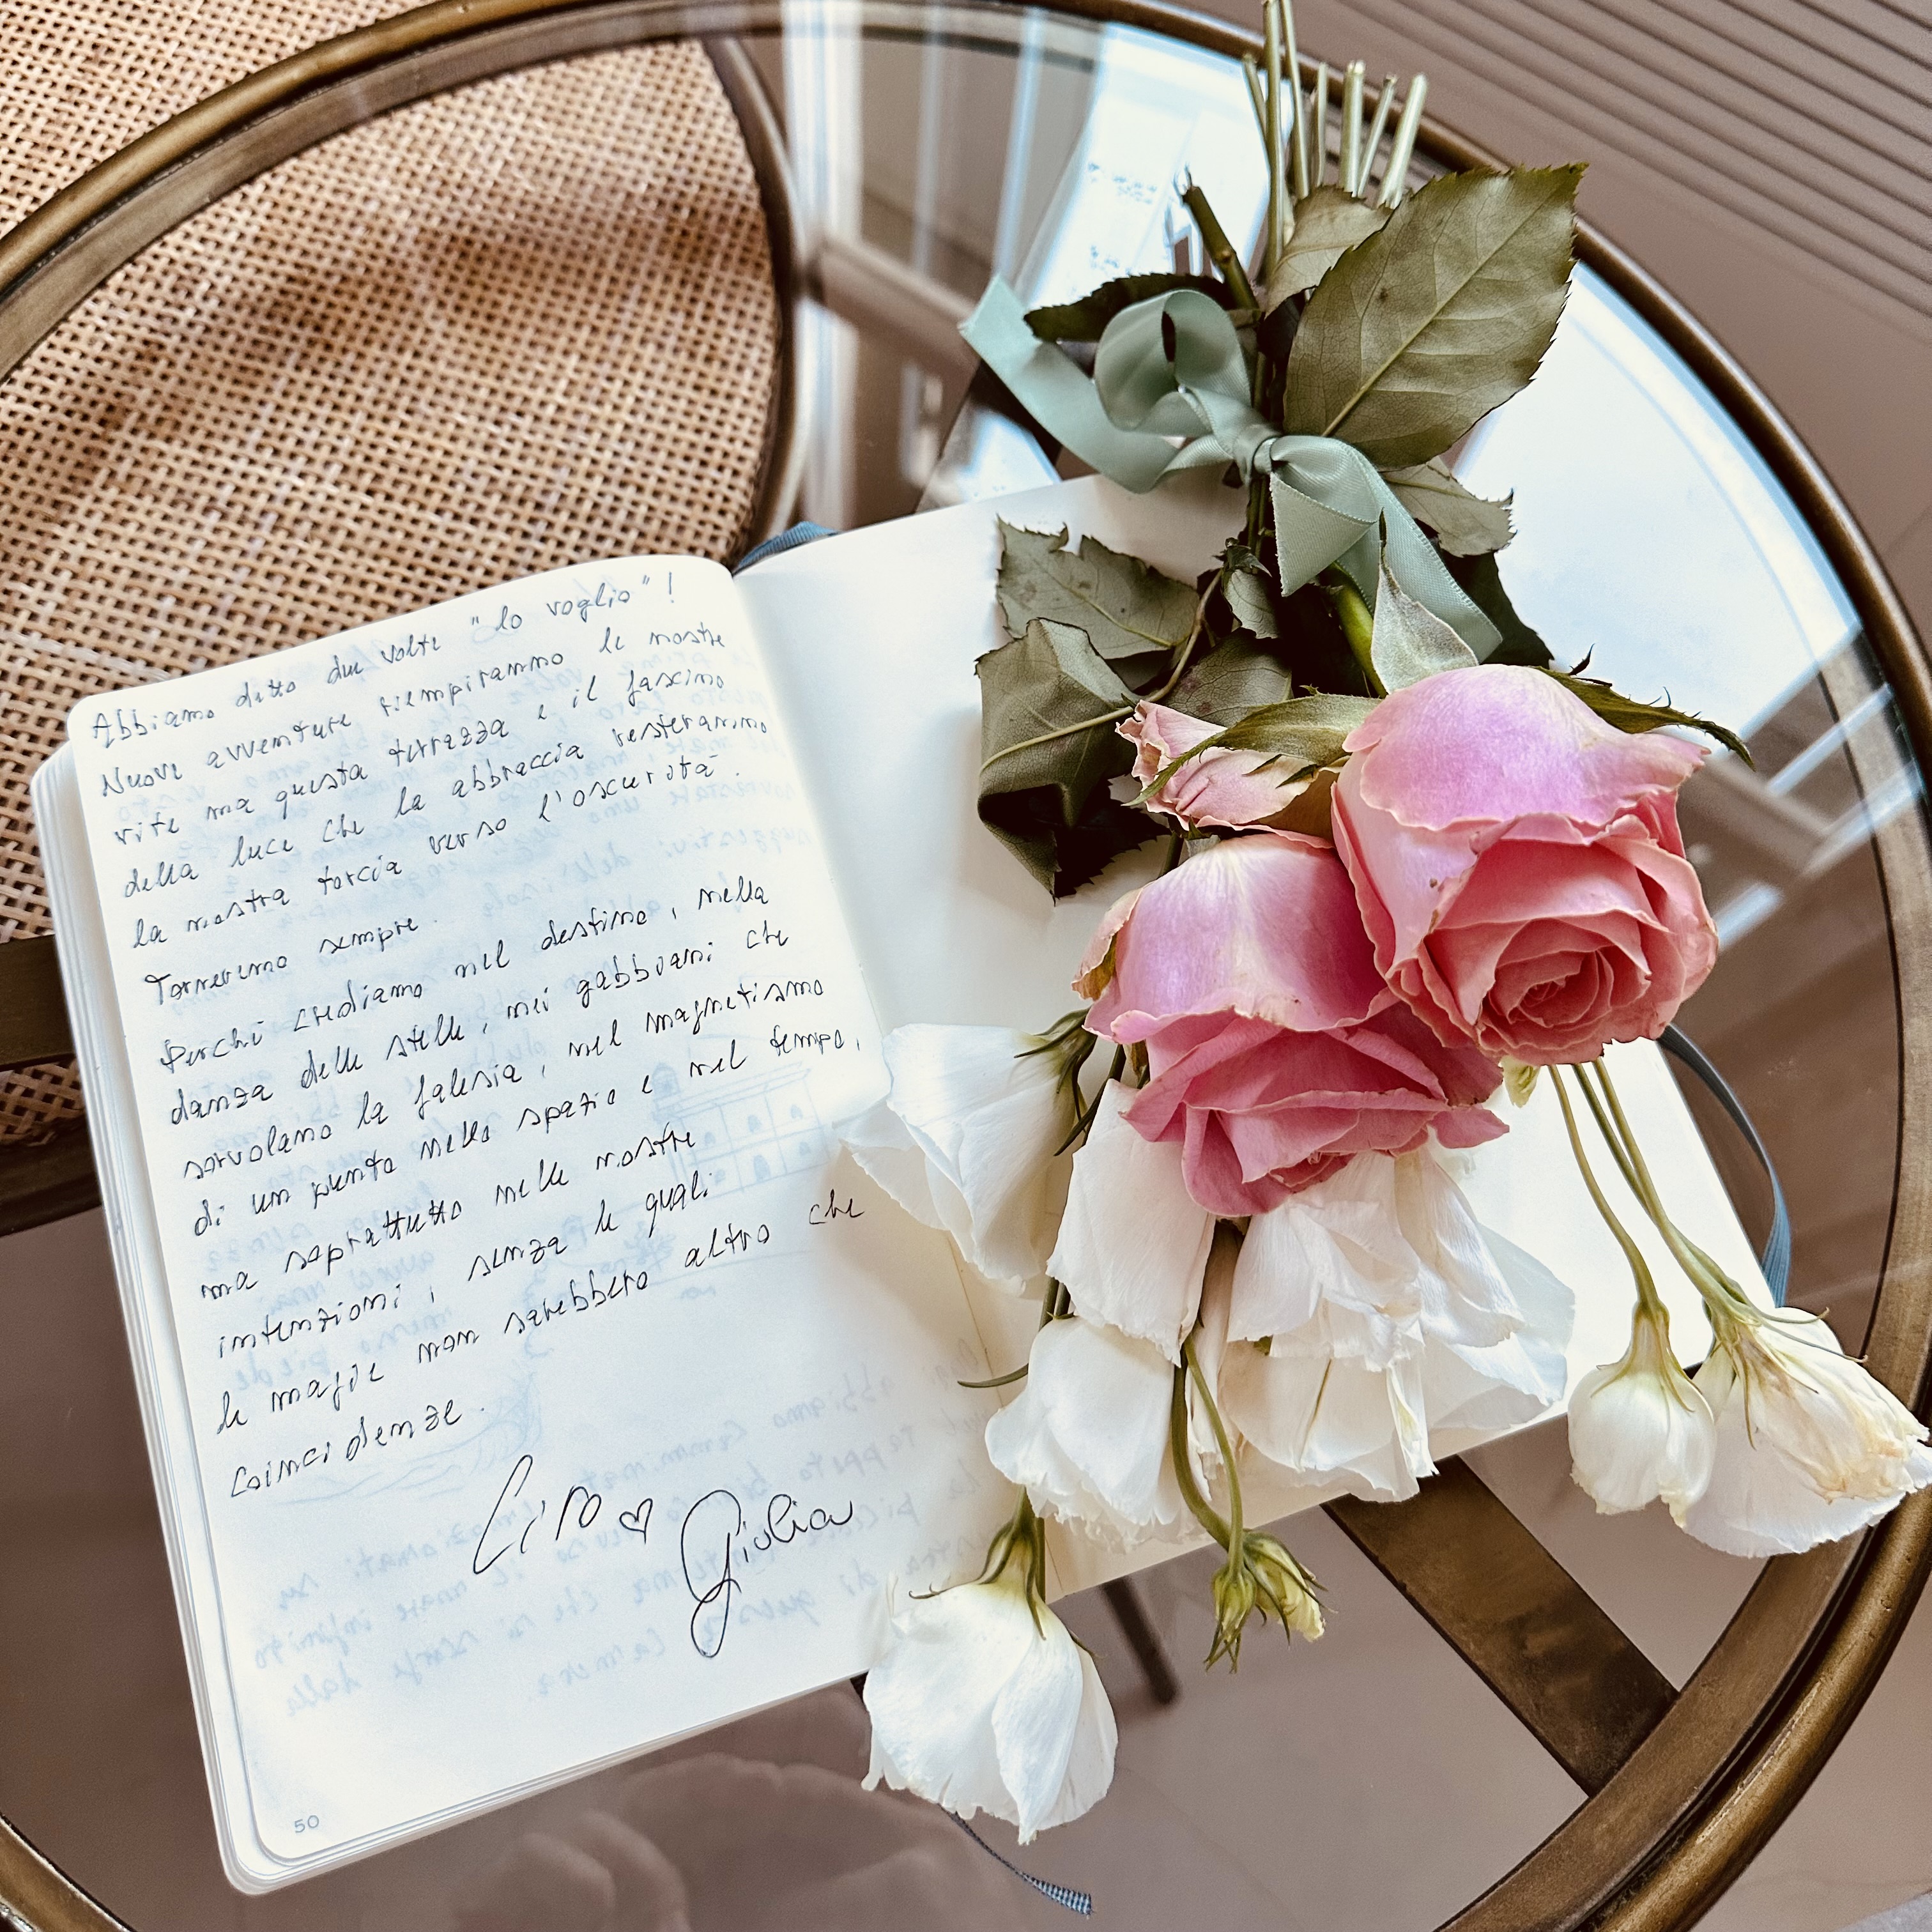 Abbiamo detto due volte "lo voglio"!
Nuove avventure riempiranno le nostre
vite ma questa terrazza e il fascino
della luce che la abbraccia resteranno
la nostra torcia verso l'oscurità.
Torneremo sempre.
Perché crediamo nel destino, nella
danza delle stelle, nei gabbiani che
sorvolano la falesia, nel magnetismo
di un punto nello spazio e nel tempo,
ma soprattutto nelle nostre
intenzioni, senza le quali
le magie non sarebbero altro che
coincidenze.
Ciro ♡ Giulia
50